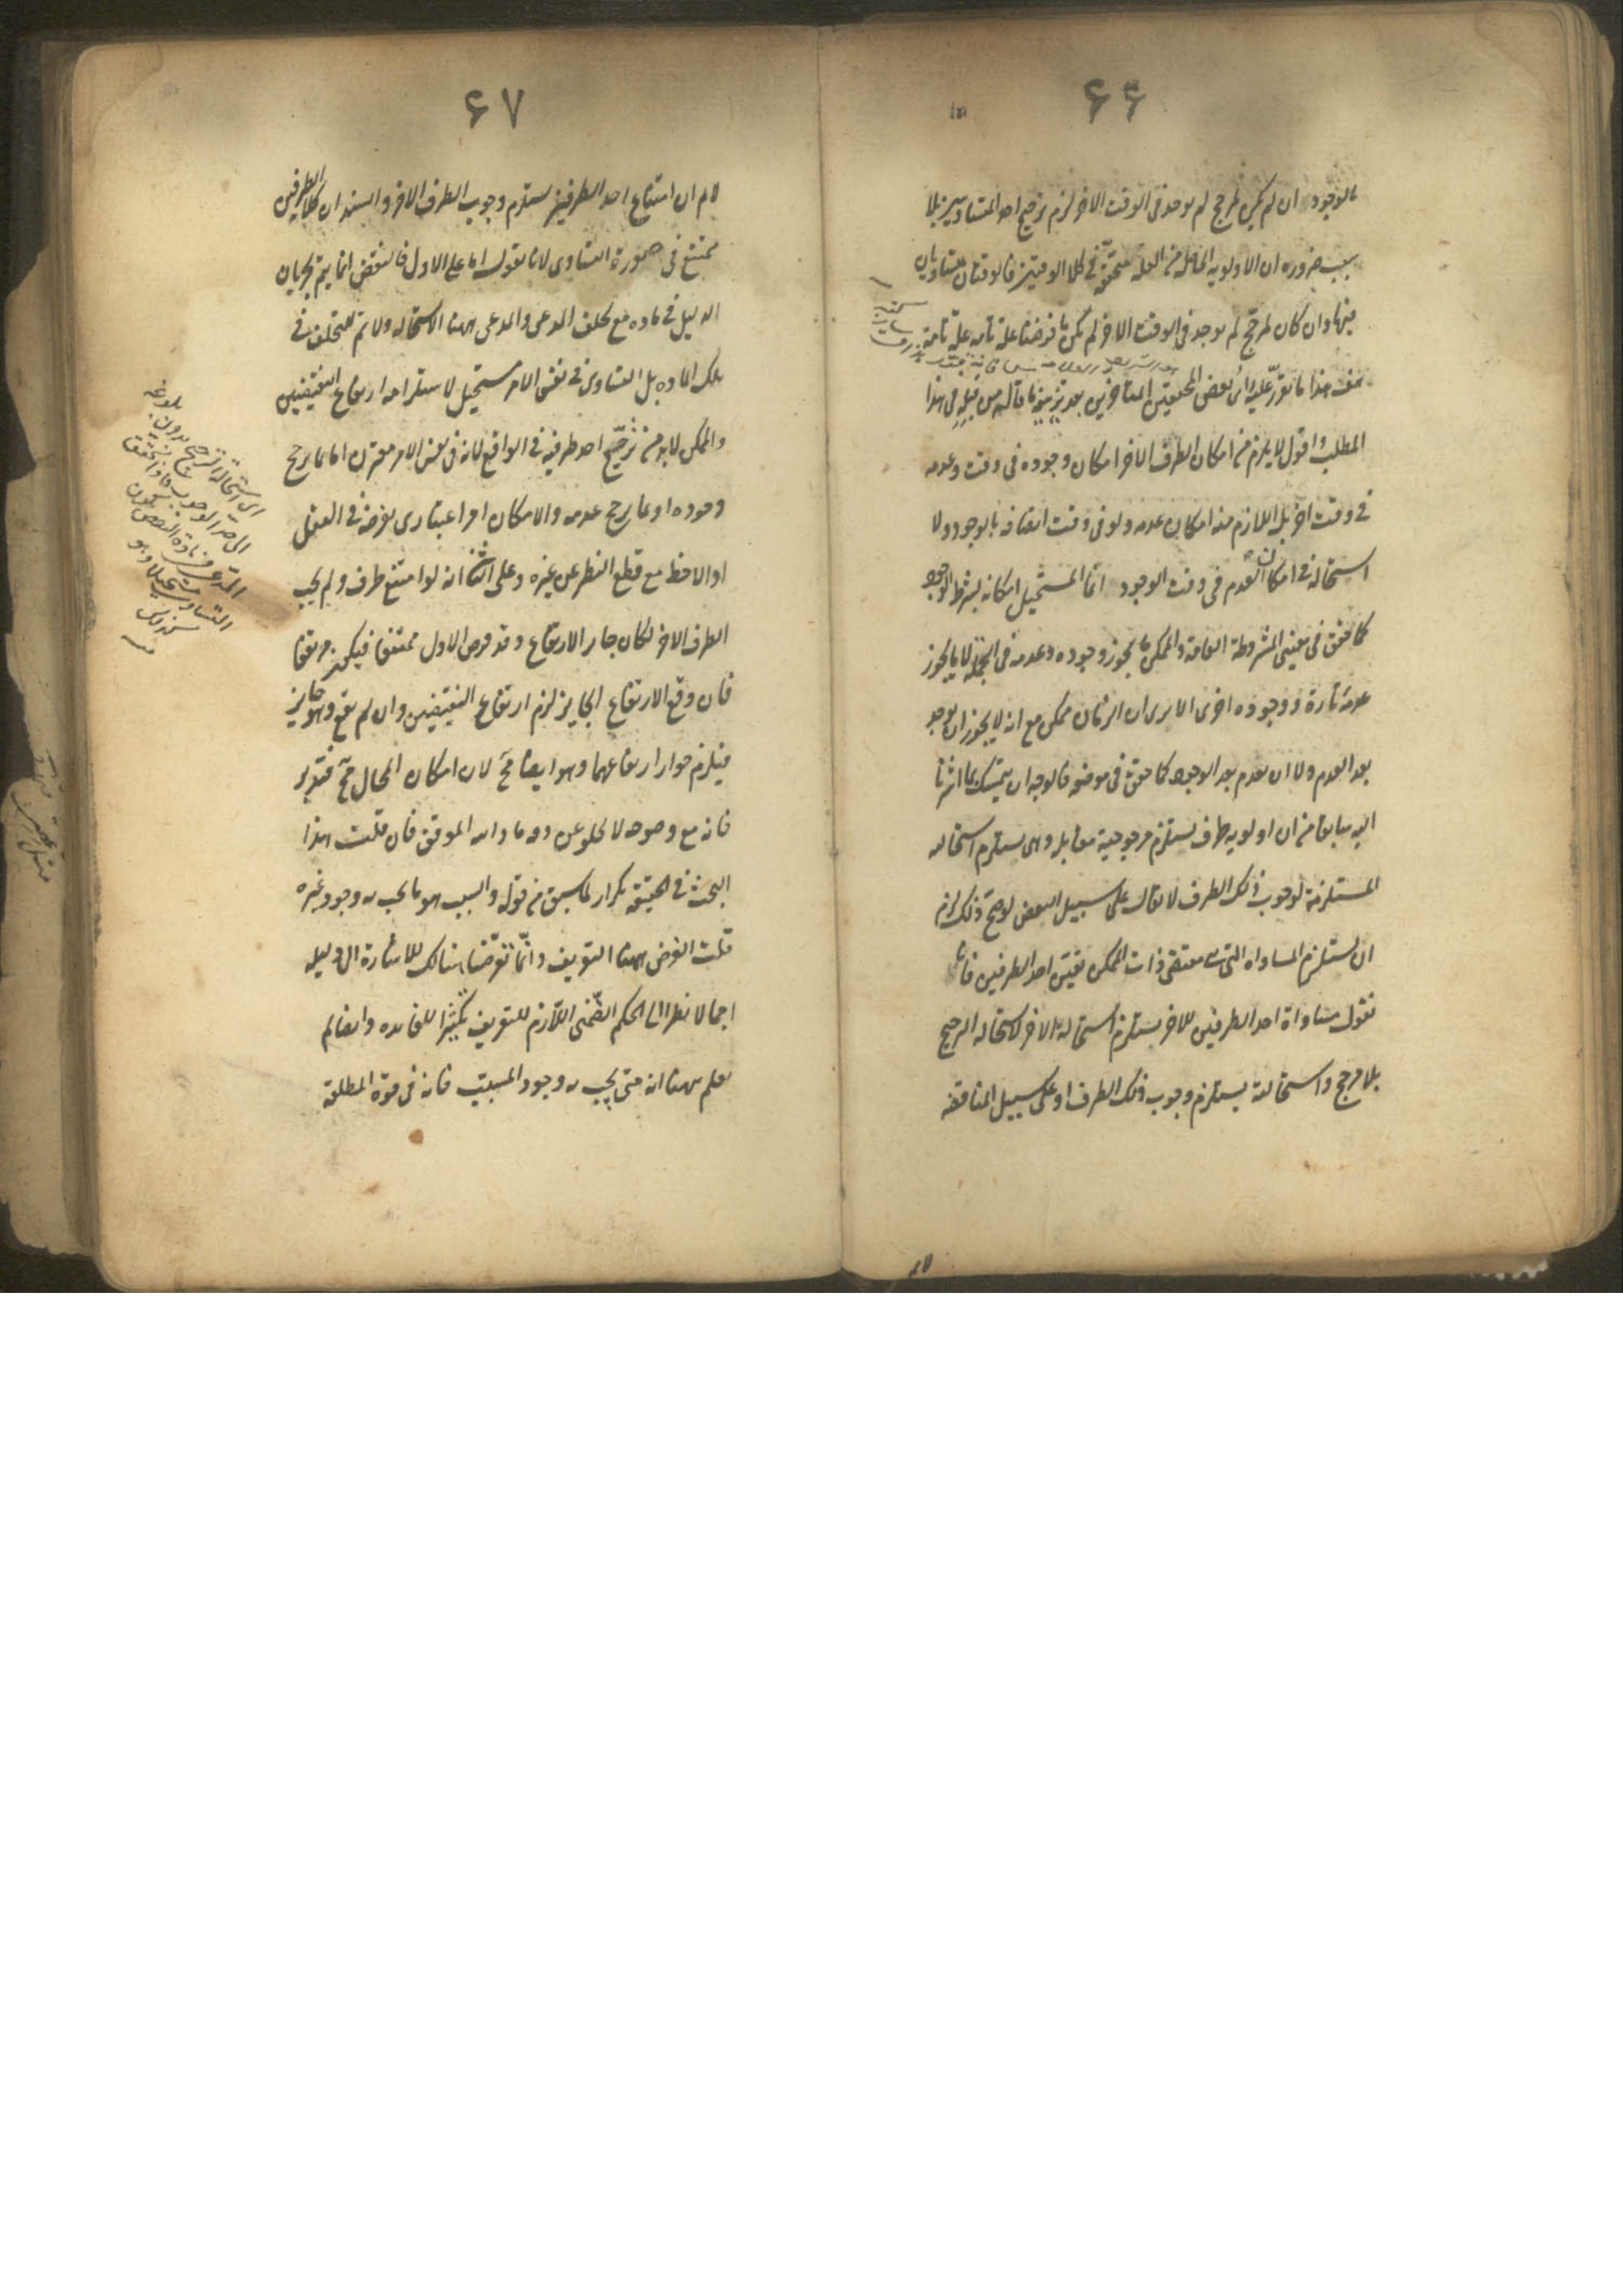 ۶۶
بالوجود ان لم يكن لمرجح لم يوجد فى الوقت الاخر لزم ترجيح احد المتساويين بلا
سبب ضروره ان الاولويه الحاصله من العله متحققة فى كلا الوقتين فالوقتان متساويان
فيها وان كان لمرجح لم يوجد فى الوقت الاخر لم يكن ما فرضنا علة تامه علة تامة
هف هذا ما تقرر عليه رأى بعض المحققين المتاخرين بعد تزييف ما قاله من قبله فى هذا
المطلب واقول لا يلزم من امكان الطرف الاخر امكان وجوده فى وقت وعدمه
فى وقت اخر بل اللازم منه امكان عدمه ولو فى وقت اتصافه بالوجود ولا
استحالة فى امكان العدم فى وقت الوجود انما المستحيل امكانه بشرط الوجود
كما حقق فى معنيى المشروطة العامة والممكن ما يجوز وجوده وعدمه فى الجمله لا ما يجوز
عدمه تارة ووجوده اخرى الا يرى ان الزمان ممكن مع انه لا يجوز ان يوجد
بعد العدم ولا ان يعدم بعد الوجود كما حقق فى موضعه فالوجه ان يتمسك بما اشرنا
اليه سابقا من ان اولويه طرف يستلزم مرجوحية مقابله وهى يستلزم استحالته
المستلزمة لوجوب ذلك الطرف لا يقال على سبيل النقض لو صح ذلك لزم
ان يستلزم المساواه التى هى مقتضى ذات الممكن تعين احد الطرفين فانا
نقول مساواة احد الطرفين للاخر يستلزم استحالة الاخر لاستحالة الترجيح
بلا مرجح واستحالته يستلزم وجوب ذلك الطرف او على سبيل المناقضه
لانم
۶۷
لانم ان امتناع احد الطرفين يستلزم وجوب الطرف الاخر والسند ان كلا الطرفين
ممتنع فى صورة التساوى لانا نقول اما على الاول فالنقض انما يتم بجريان
الدليل فى ماده مع تخلف المدعى والمدعى ههنا الاستحاله ولا تم للتخلف فى
تلك الماده بل التساوى فى نفس الامر مستحيل لاستلزامه ارتفاع النقيضين
والممكن لا بد من ترجيح احد طرفيه فى الواقع لانه فى نفس الامر مقترن اما بما يرجح
وجوده او بما يرجح عدمه والامكان امر اعتبارى يعرضه فى العقل
اذا لاحظه مع قطع النظر عن غيره وعلى الثانى انه لو امتنع طرف ولم يجب
الطرف الاخر لكان جايز الارتفاع وقد فرض الاول ممتنعا فيكون مرتفعا
فان وقع الارتفاع الجايز لزم ارتفاع النقيضين وان لم يقع وهو جايز
فيلزم جواز ارتفاعهما وهو ايضا مح لان امكان المحال مح فتدبر
فانه مع وضوحه لا يخلو عن دقه ما والله الموفق فان قلت هذا
البحث فى الحقيقة تكرار لما سبق من قوله والسبب هو ما يجب به وجود غيره
قلت الغرض ههنا التعريف وانما تعرضنا هنالك للاشارة الى دليله
اجمالا نظرا الى الحكم الضمنى اللازم للتعريف تكثيرا للفايده وايضا لم
يعلم ههنا انه متى يجب به وجود المسبب فانه فى قوة المطلقة
الى استحالة الترجيح بدون بلوغه
الى حد الوجوب فاذا تحقق
المدعى فى مادة النقض يكون
التساوى مستحيلا وهو
كذلك